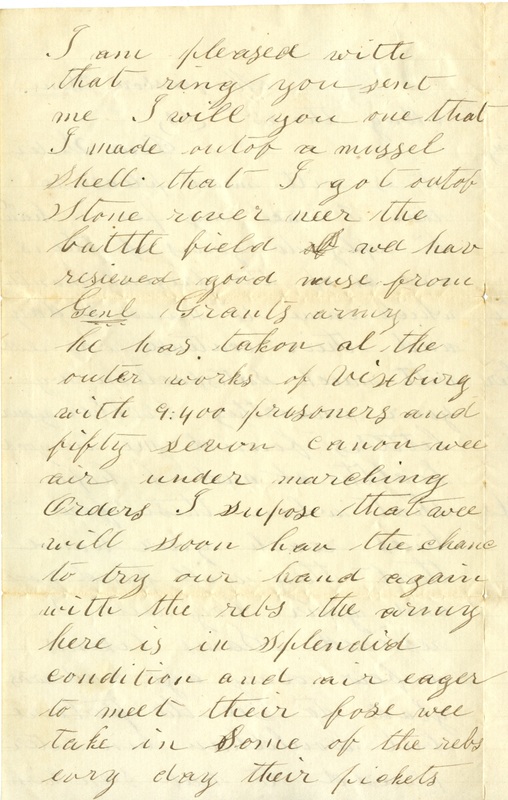 I am pleased with
that ring you sent
me I will you one that
I made outof a mussel
shell that I got outof
Stone rover neer the
battle field wee hav
resieved good nuse from
Genl Grants army
he has takon al the
outer works of Vixburg
with 9:400 prisoners and
fifty sevon canon wee
air under marching
Orders I supose that wee
will soon hav the chanc
to try our hand again
with the rebs the army
here is in splendid
condition and air eager
to meet their fose wee
take in Some of the rebs
evry day their pickets